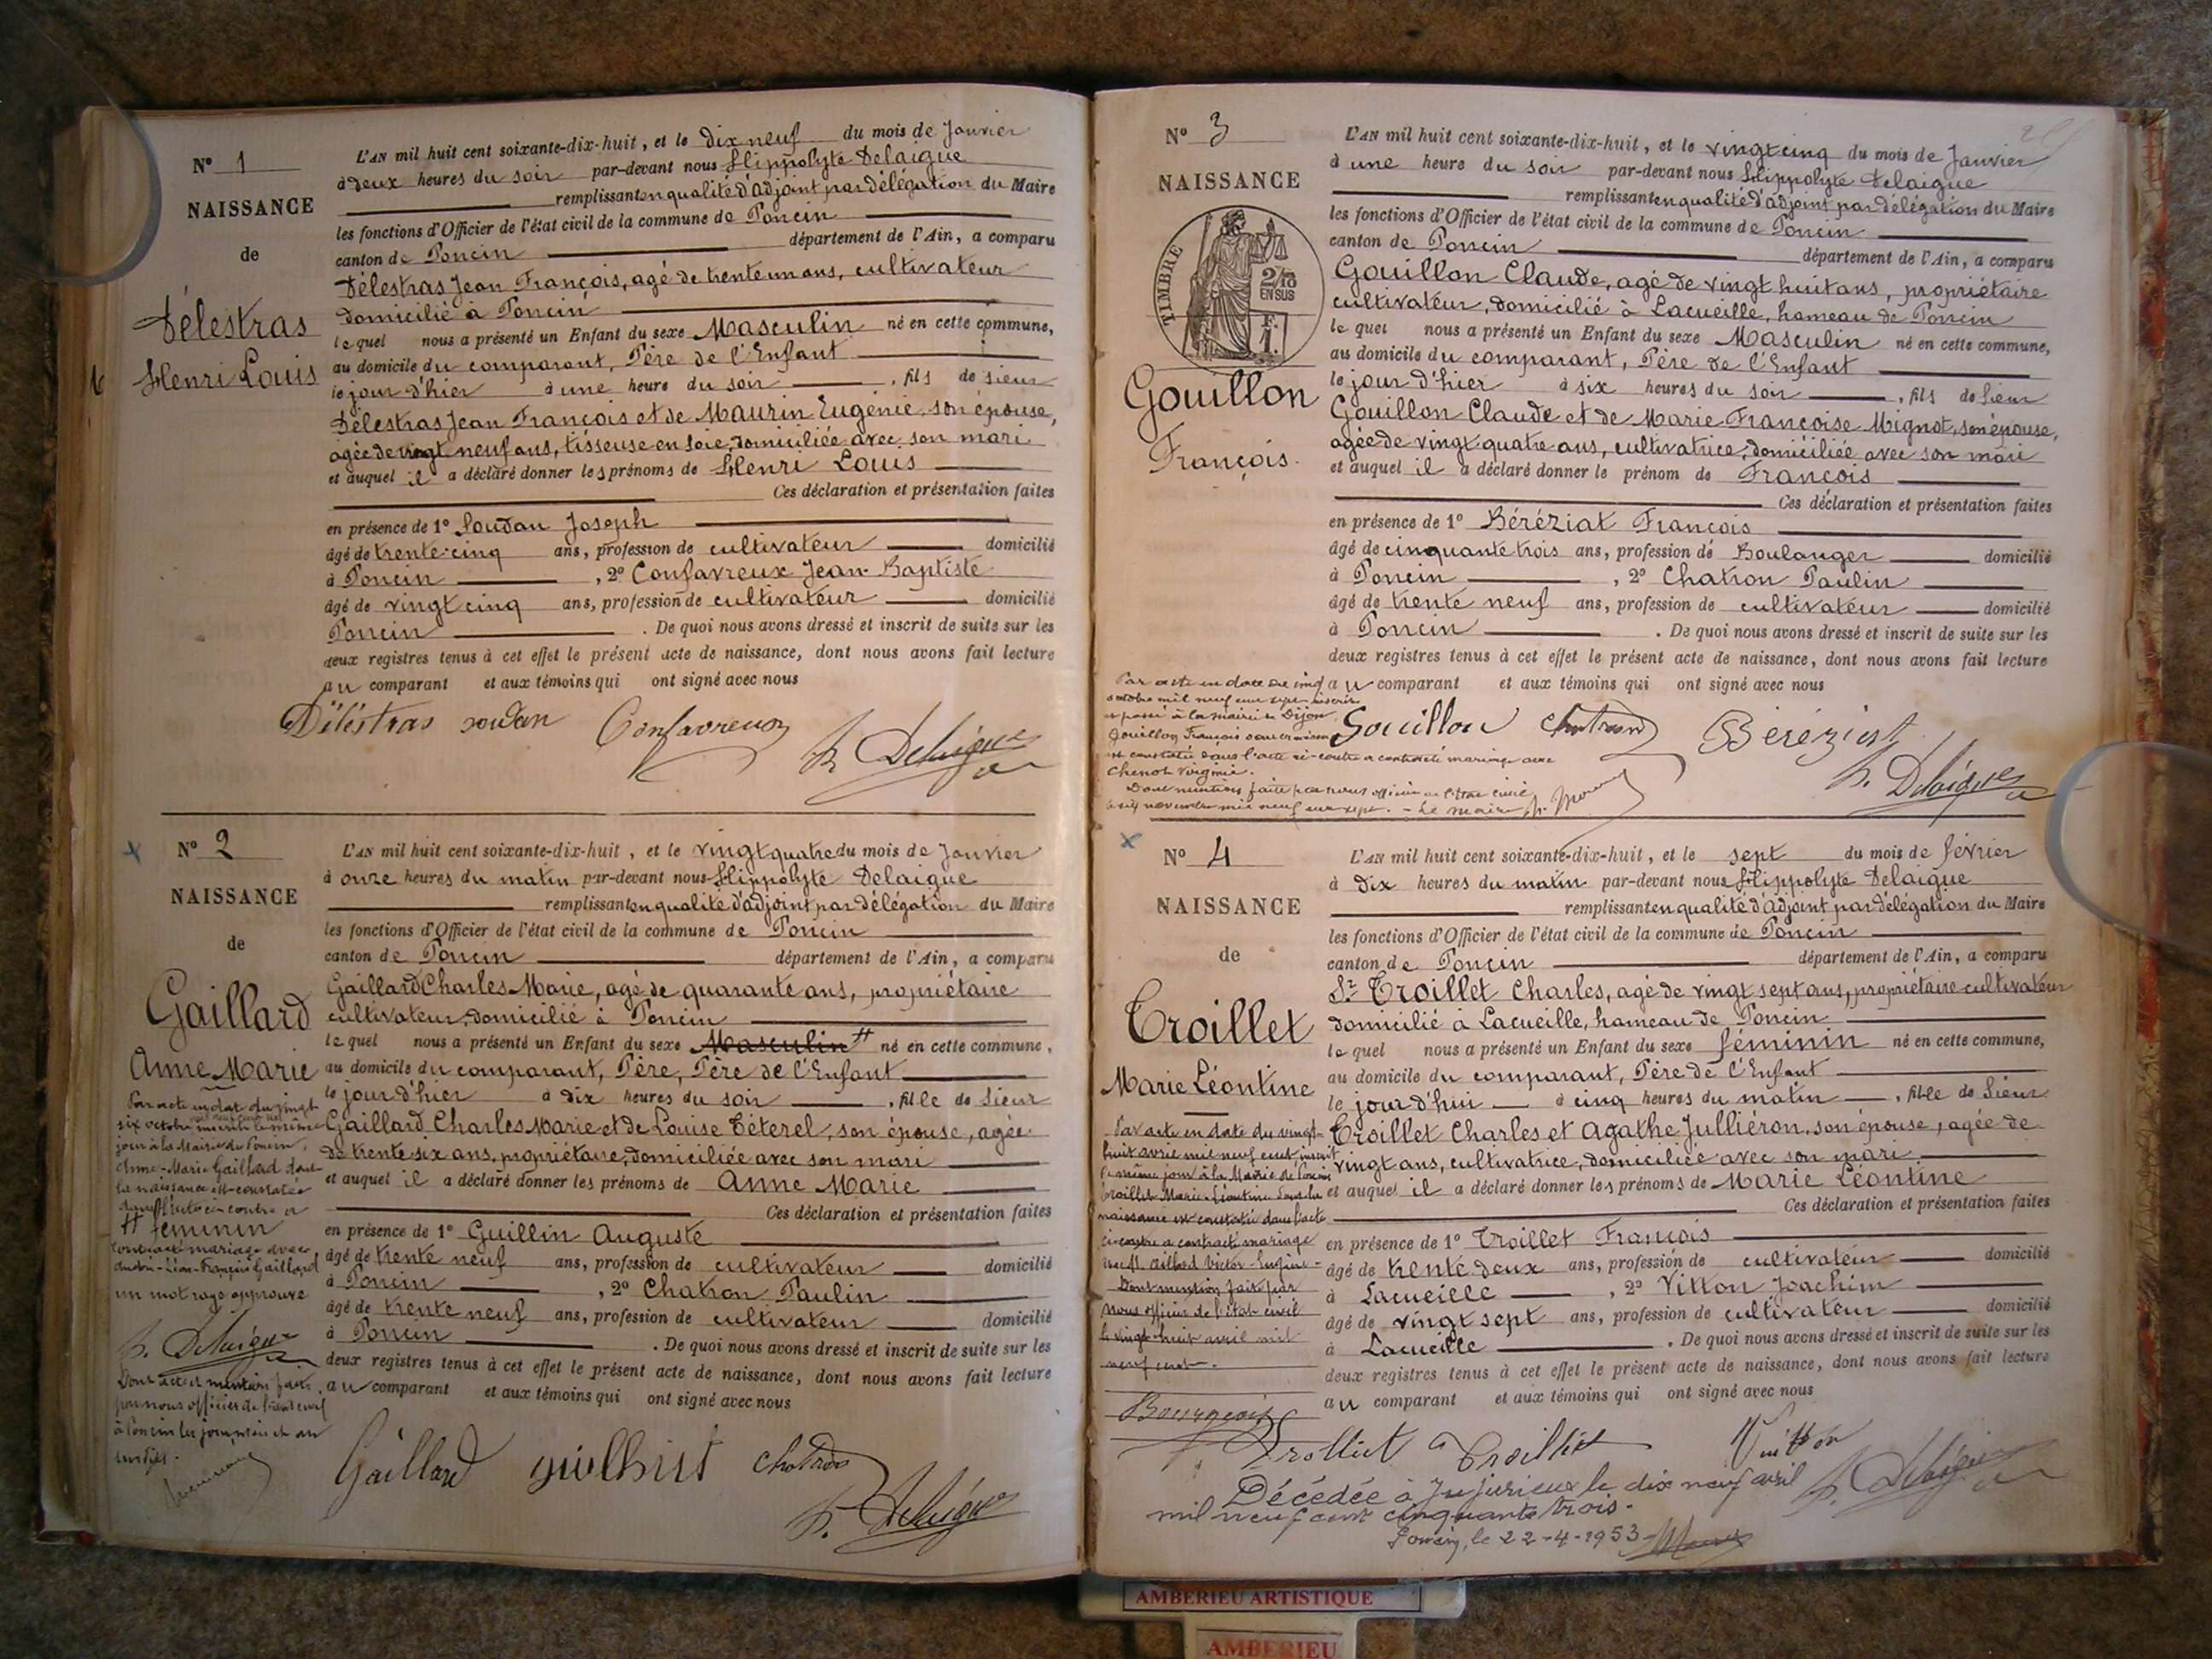 N° 1
NAISSANCE
de
Délestras
Henri Louis
L'AN mil huit cent soixante-dix-huit, et le dix neuf du mois de Janvier
à deux heures du soir par-devant nous Hippolyte Delaigue
remplissant en qualité d'adjoint par délégation du Maire
les fonctions d'Officier de l'état civil de la commune de Poncin
canton de Poncin département de l'Ain, a comparu
Délestras Jean François, agé de trente un ans, cultivateur
domicilié à Poncin
lequel nous a présenté un Enfant du sexe Masculin né en cette commune,
au domicile du comparant, Père de l'Enfant
le jour d'hier à une heure du soir, fils de sieur
Délestras Jean François et de Maurin Eugénie, son épouse,
agée de vingt neuf ans, tisseuse en soie, domiciliée avec son mari
et auquel il a déclaré donner les prénoms de Henri Louis
Ces déclaration et présentation faites
en présence de 1° Soudan Joseph
âgé de trente-cinq ans, profession de cultivateur domicilié
à Poncin, 2° Confavreux Jean-Baptiste
âgé de vingt cinq ans, profession de cultivateur domicilié
Poncin. De quoi nous avons dressé et inscrit de suite sur les
deux registres tenus à cet effet le présent acte de naissance, dont nous avons fait lecture
au comparant et aux témoins qui ont signé avec nous
Déléstras soudan Confavreux h. Delaigue
N° 2
NAISSANCE
de
Gaillard
Anne Marie
Par acte en date du vingt
six octobre
jour à la Mairie de Poncin,
Anne-Marie Gaillard dont
la naissance est constatée
dans l'acte ci-contre a
# féminin
contracté mariage avec
Léon-François Gaillard
un mot rayé approuvé
h. Delaigue
Dont acte et mention faite
par nous officier de l'état civil
à Poncin les jour, mois et an
susdits.
L'AN mil huit cent soixante-dix-huit, et le vingt quatre du mois de Janvier
à onze heures du matin par-devant nous Hippolyte Delaigue
remplissant en qualité d'adjoint par délégation du Maire
les fonctions d'Officier de l'état civil de la commune de Poncin
canton de Poncin département de l'Ain, a comparu
Gaillard Charles Marie, agé de quarante ans, propriétaire
cultivateur, domicilié à Poncin
lequel nous a présenté un Enfant du sexe Masculin # né en cette commune,
au domicile du comparant, Père, Père de l'Enfant
le jour d'hier à dix heures du soir, fille de Sieur
Gaillard Charles Marie et de Louise Téterel, son épouse, agée
de trente six ans, propriétaire, domiciliée avec son mari
et auquel il a déclaré donner les prénoms de Anne Marie
Ces déclaration et présentation faites
en présence de 1° Guillin Auguste
âgé de trente neuf ans, profession de cultivateur domicilié
à Poncin, 2° Chatron Paulin
âgé de trente neuf ans, profession de cultivateur domicilié
à Poncin. De quoi nous avons dressé et inscrit de suite sur les
deux registres tenus à cet effet le présent acte de naissance, dont nous avons fait lecture
au comparant et aux témoins qui ont signé avec nous
Gaillard chatron
h. Delaigue
N° 3
NAISSANCE
TIMBRE
2/10
EN SUS
F.
1.
Gouillon
François.
L'AN mil huit cent soixante-dix-huit, et le vingt cinq du mois de Janvier
à une heure du soir par-devant nous Hippolyte Delaigue
remplissant en qualité d'adjoint par délégation du Maire
les fonctions d'Officier de l'état civil de la commune de Poncin
canton de Poncin département de l'Ain, a comparu
Gouillon Claude, agé de vingt huit ans, propriétaire
cultivateur, domicilié à Lacueille, hameau de Poncin
lequel nous a présenté un Enfant du sexe Masculin né en cette commune,
au domicile du comparant, Père de l'Enfant
le jour d'hier à six heures du soir, fils de Sieur
Gouillon Claude et de Marie Françoise Mignot, son épouse,
agée de vingt quatre ans, cultivatrice, domiciliée avec son mari
et auquel il a déclaré donner le prénom de François
Ces déclaration et présentation faites
en présence de 1° Béréziat François
âgé de cinquante trois ans, profession de Boulanger domicilié
à Poncin, 2° Chatron Paulin
âgé de trente neuf ans, profession de cultivateur domicilié
à Poncin. De quoi nous avons dressé et inscrit de suite sur les
deux registres tenus à cet effet le présent acte de naissance, dont nous avons fait lecture
au comparant et aux témoins qui ont signé avec nous
Par acte en date du cinq
octobre mil neuf cent sept inscrit
et passé à la mairie de Dijon
Gouillon François dont la naissance
est constatée dans l'acte ci-contre a contracté mariage avec
Chenot Virginie.
Dont mention faite par nous officier de l'état civil
le six novembre mil neuf cent sept. - Le maire,
Gouillon Chatron Béréziat
h. Delaigue
N° 4
NAISSANCE
de
Troillet
Marie Léontine
Par acte en date du vingt-
huit avril mil neuf cent inscrit
le même jour à la Mairie de Poncin
Troillet Marie-Léontine dont la
naissance est constatée dans l'acte
ci-contre a contracté mariage
avec Victor-Eugène.
Dont mention faite par
nous officier de l'état civil
le vingt-huit avril mil
neuf cent.
Bourgeois
L'AN mil huit cent soixante-dix-huit, et le sept du mois de février
à dix heures du matin par-devant nous Hippolyte Delaigue
remplissant en qualité d'adjoint par délégation du Maire
les fonctions d'Officier de l'état civil de la commune de Poncin
canton de Poncin département de l'Ain, a comparu
Sr Troillet Charles, agé de vingt sept ans, propriétaire cultivateur
domicilié à Lacueille, hameau de Poncin
lequel nous a présenté un Enfant du sexe féminin né en cette commune,
au domicile du comparant, Père de l'Enfant
le jour d'hui à cinq heures du matin, fille de Sieur
Troillet Charles et Agathe Julliéron, son épouse, agée de
vingt ans, cultivatrice, domiciliée avec son mari
et auquel il a déclaré donner les prénoms de Marie Léontine
Ces déclaration et présentation faites
en présence de 1° Troillet François
âgé de trente deux ans, profession de cultivateur domicilié
à Lacueille, 2° Vitton Joachim
âgé de vingt sept ans, profession de cultivateur domicilié
à Lacueille. De quoi nous avons dressé et inscrit de suite sur les
deux registres tenus à cet effet le présent acte de naissance, dont nous avons fait lecture
au comparant et aux témoins qui ont signé avec nous
Trolliet Troilliet Vuitton
h. Delaigue
Décédée à Jujurieux le dix neuf avril
mil neuf cent cinquante trois.
Poncin, le 22-4-1953
AMBERIEU ARTISTIQUE
AMBERIEU